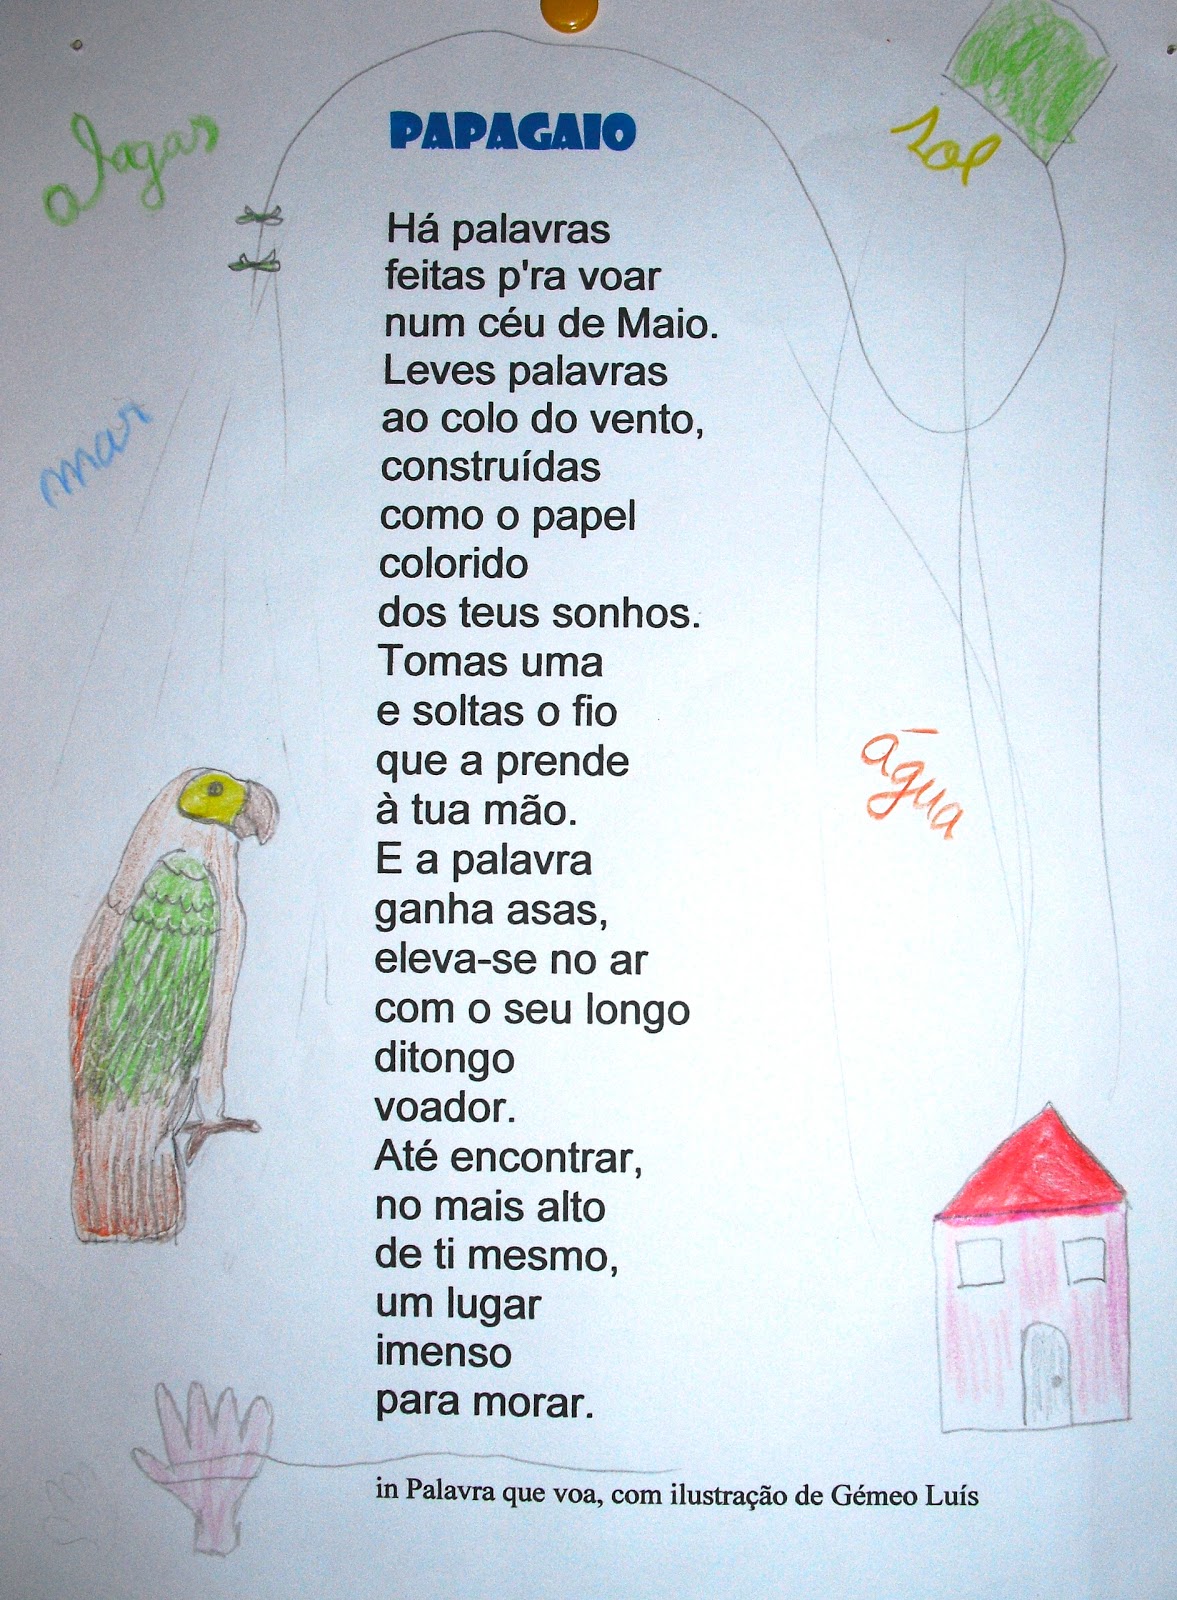 PAPAGAIO
sol
Há palavras
feitas p'ra voar
num céu de Maio.
Leves palavras
ao colo do vento,
construídas
como o papel
colorido
dos teus sonhos.
Tomas uma
e soltas o fio
que a prende
à tua mão.
E a palavra
ganha asas,
eleva-se no ar
com o seu longo
ditongo
voador.
Até encontrar,
no mais alto
de ti mesmo,
um lugar
imenso
para morar.
mar
água
in Palavra que voa, com ilustração de Gémeo Luís